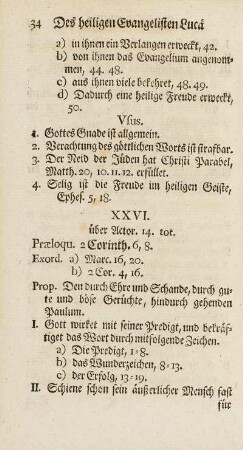 34 Des heiligen Evangelisten Lucä
a) in ihnen ein Verlangen erweckt, 42.
b) von ihnen das Evangelium angenom-
men, 44. 48.
c) aus ihnen viele bekehret, 48. 49.
d) Dadurch eine heilige Freude erweckt,
50.
Vsus.
1. Gottes Gnade ist allgemein.
2. Verachtung des göttlichen Worts ist strafbar.
3. Der Neid der Jüden hat Christi Parabel,
Matth. 20, 10. 11. 12. erfüllet.
4. Selig ist die Freude im heiligen Geiste,
Ephes. 5, 18.
XXVI.
über Actor. 14. tot.
Præloqu. 2 Corinth. 6, 8.
Exord. a) Marc. 16, 20.
b) 2 Cor. 4, 16.
Prop. Den durch Ehre und Schande, durch gu-
te und böse Gerüchte, hindurch gehenden
Paulum.
I. Gott wirket mit seiner Predigt, und bekräf-
tiget das Wort durch mitfolgende Zeichen.
a) Die Predigt, 1-8.
b) das Wunderzeichen, 8-13.
c) der Erfolg, 13-19.
II. Schiene schon sein äußerlicher Mensch fast
für